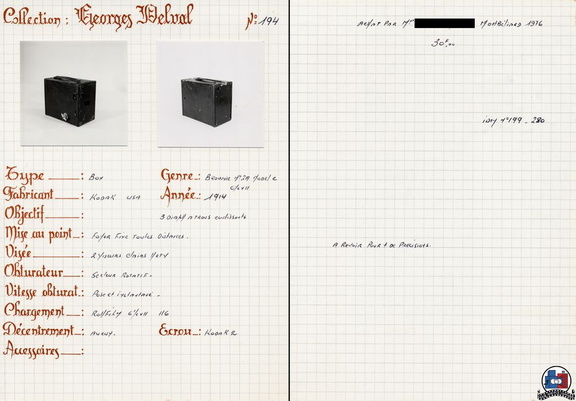 Collection : Georges Delval N°: 194
Type : Box
Genre : Brownie N°2A Model C
6½x11
Fabricant : Kodak USA
Année : 1914
Objectif : 3 Diaph a trous coulissants
Mise au point : Foyer Fixe Toutes Distances.
Visée : 2 Viseurs clairs
Obturateur : Secteur Rotatif -
Vitesse obturat. : Pose et instantané -
Chargement : Rollfilm 6½x11 116
Décentrement : aucun.
Ecrou : Kodak 2
Accessoires :
Achat Par Mr Montélimar 1976
30F,00
idem N°199 - 280
A Revoir Pour + de Precisions